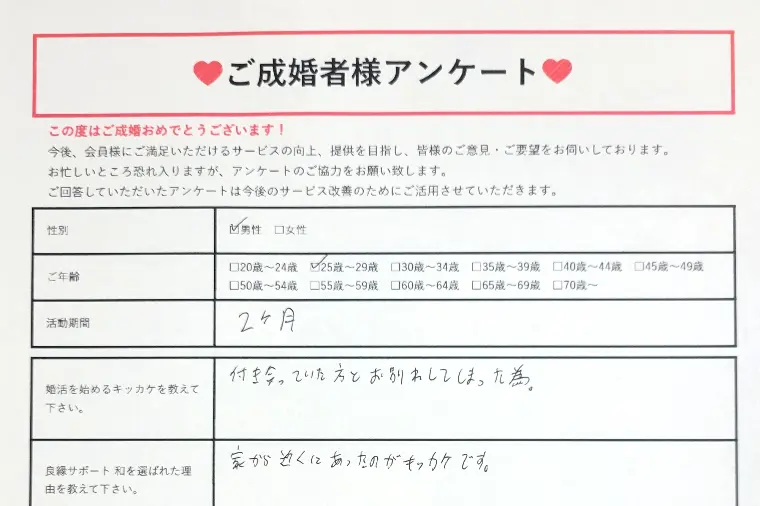 ♥ご成婚者様アンケート♥
この度はご成婚おめでとうございます！
今後、会員様にご満足いただけるサービスの向上、提供を目指し、皆様のご意見・ご要望をお伺いしております。
お忙しいところ恐れ入りますが、アンケートのご協力をお願い致します。
ご回答していただいたアンケートは今後のサービス改善のためにご活用させていただきます。
性別
☑男性 □女性
ご年齢
□20歳～24歳 ☑25歳～29歳 □30歳～34歳 □35歳～39歳 □40歳～44歳 □45歳～49歳
□50歳～54歳 □55歳～59歳 □60歳～64歳 □65歳～69歳 □70歳～
活動期間
2ヶ月
婚活を始めるキッカケを教えて
下さい。
付き会っていた方とお別れしてしまった為。
良縁サポート 和を選ばれた理
由を教えて下さい。
家から近くにあったのがキッカケです。